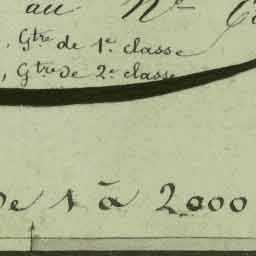 au N.
, Gtre de 1e. classe
, Gtre de 2e. classe
De 1 à 2000